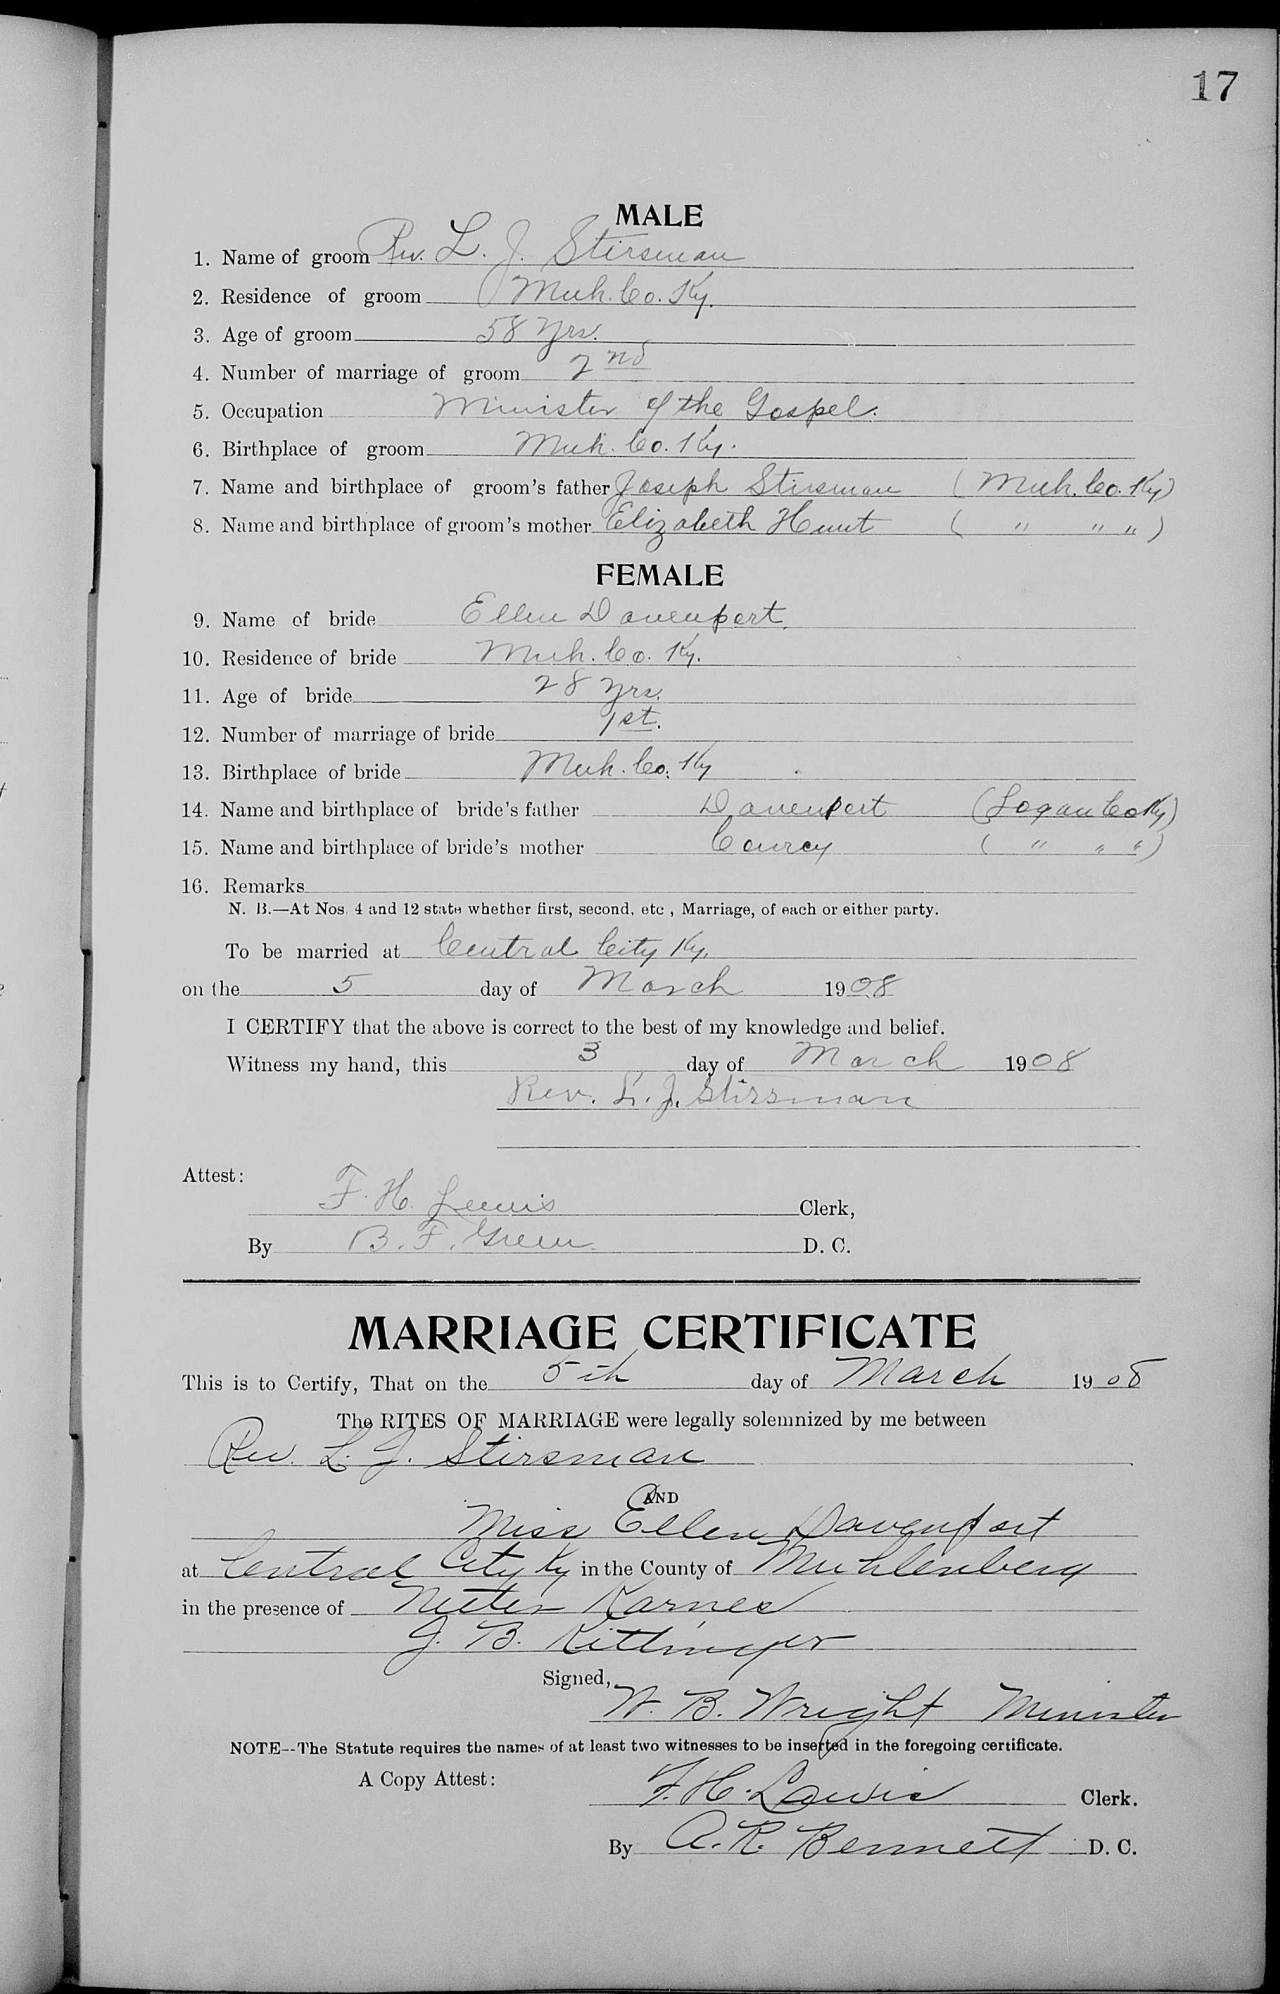 17
MALE
1. Name of groom Rev. L. J. Stirsman
2. Residence of groom Muh. Co. Ky.
3. Age of groom 58 yrs.
4. Number of marriage of groom 2nd
5. Occupation Minister of the Gospel.
6. Birthplace of groom Muh. Co. Ky.
7. Name and birthplace of groom's father Joseph Stirsman (Muh. Co. Ky)
8. Name and birthplace of groom's mother Elizabeth Hunt ( " " " )
FEMALE
9. Name of bride Ellen Davenport.
10. Residence of bride Muh. Co. Ky.
11. Age of bride 28 yrs.
12. Number of marriage of bride 1st.
13. Birthplace of bride Muh. Co. Ky
14. Name and birthplace of bride's father Davenport (Logan Co Ky)
15. Name and birthplace of bride's mother ( " " " )
16. Remarks
N. B.—At Nos. 4 and 12 state whether first, second, etc., Marriage, of each or either party.
To be married at Central City Ky.
on the 5 day of March 1908
I CERTIFY that the above is correct to the best of my knowledge and belief.
Witness my hand, this 3 day of March 1908
Rev. L. J. Stirsman
Attest:
F. H. Lewis Clerk,
By B. F. Green D. C.
MARRIAGE CERTIFICATE
This is to Certify, That on the 5th day of March 1908
The RITES OF MARRIAGE were legally solemnized by me between
Rev. L. J. Stirsman
AND
Miss Ellen Davenport
at Central City Ky in the County of Muhlenberg
in the presence of Karnes
J. B. Kittinger
Signed,
W. B. Wright Minister
NOTE--The Statute requires the names of at least two witnesses to be inserted in the foregoing certificate.
A Copy Attest:
F. H. Lewis Clerk.
By A. R. Bennett D. C.